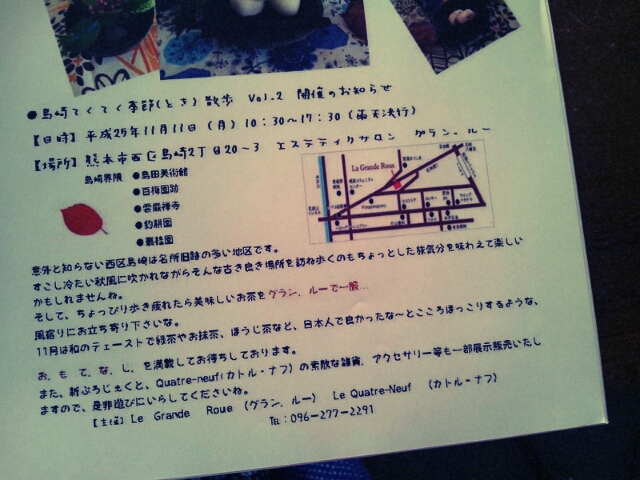 ●島崎てくてく季節(とき)散歩 Vol.2 開催のお知らせ
【日時】平成25年11月11日(月)10:30~17:30(雨天決行)
【場所】熊本市西区島崎2丁目20~3 エステティクサロン グラン.ルー
島崎界隈 ●島田美術館
●百梅園跡
●雲巌禅寺
●釣耕園
●叢桂園
La Grande Roue
意外と知らない西区島崎は名所旧跡の多い地区です。
すこし冷たい秋風に吹かれながらそんな古き良き場所を訪ね歩くのもちょっとした旅気分を味わえて楽しい
かもしれませんね。
そして、ちょっぴり歩き疲れたら美味しいお茶をグラン.ルーで一服…
風宿りにお立ち寄り下さいな。
11月は和のテーストで緑茶やお抹茶、ほうじ茶など、日本人で良かったな~とこころほっこりするような、
お.も.て.な.し.を満載してお待ちしております。
また、新ぷろじぇくと、Quatre-neuf(カトル・ナフ)の素敵な雑貨.アクセサリー等も一部展示販売いたし
ますので、是非遊びにいらしてくださいね。
【主催】Le Grande Roue (グラン.ルー) Le Quatre-Neuf (カトル・ナフ)
TEL:096-277-2291